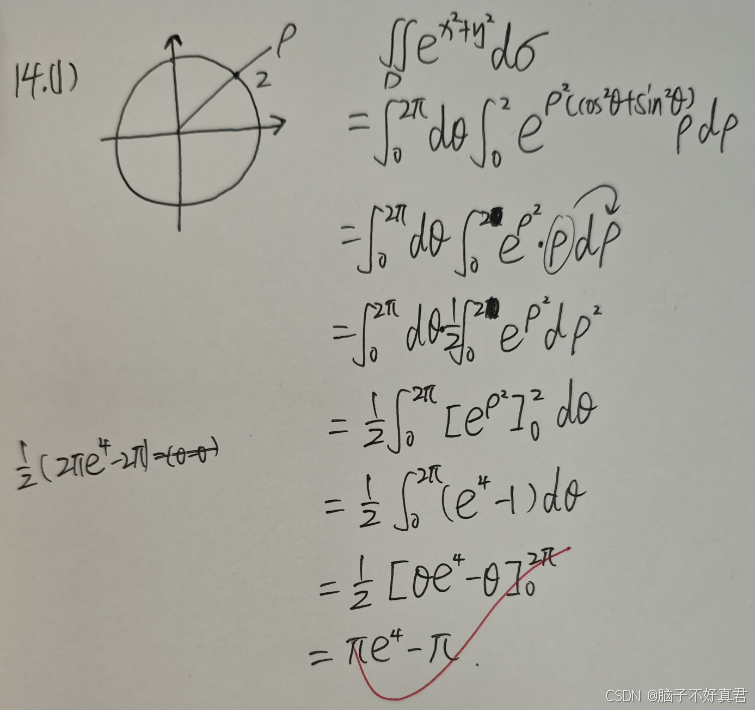 14.(1)
ρ
2
∬_D e^{x²+y²} dσ
= ∫_0^{2π} dθ ∫_0^2 e^{ρ²(cos²θ+sin²θ)} ρ dρ
= ∫_0^{2π} dθ ∫_0^2 e^{ρ²} · ρ dρ
= ∫_0^{2π} dθ · 1/2 ∫_0^2 e^{ρ²} dρ²
= 1/2 ∫_0^{2π} [e^{ρ²}]_0^2 dθ
1/2 (2πe⁴-2π)=(0-0)
= 1/2 ∫_0^{2π} (e⁴-1) dθ
= 1/2 [θe⁴-θ]_0^{2π}
= πe⁴-π.
CSDN @脑子不好真君